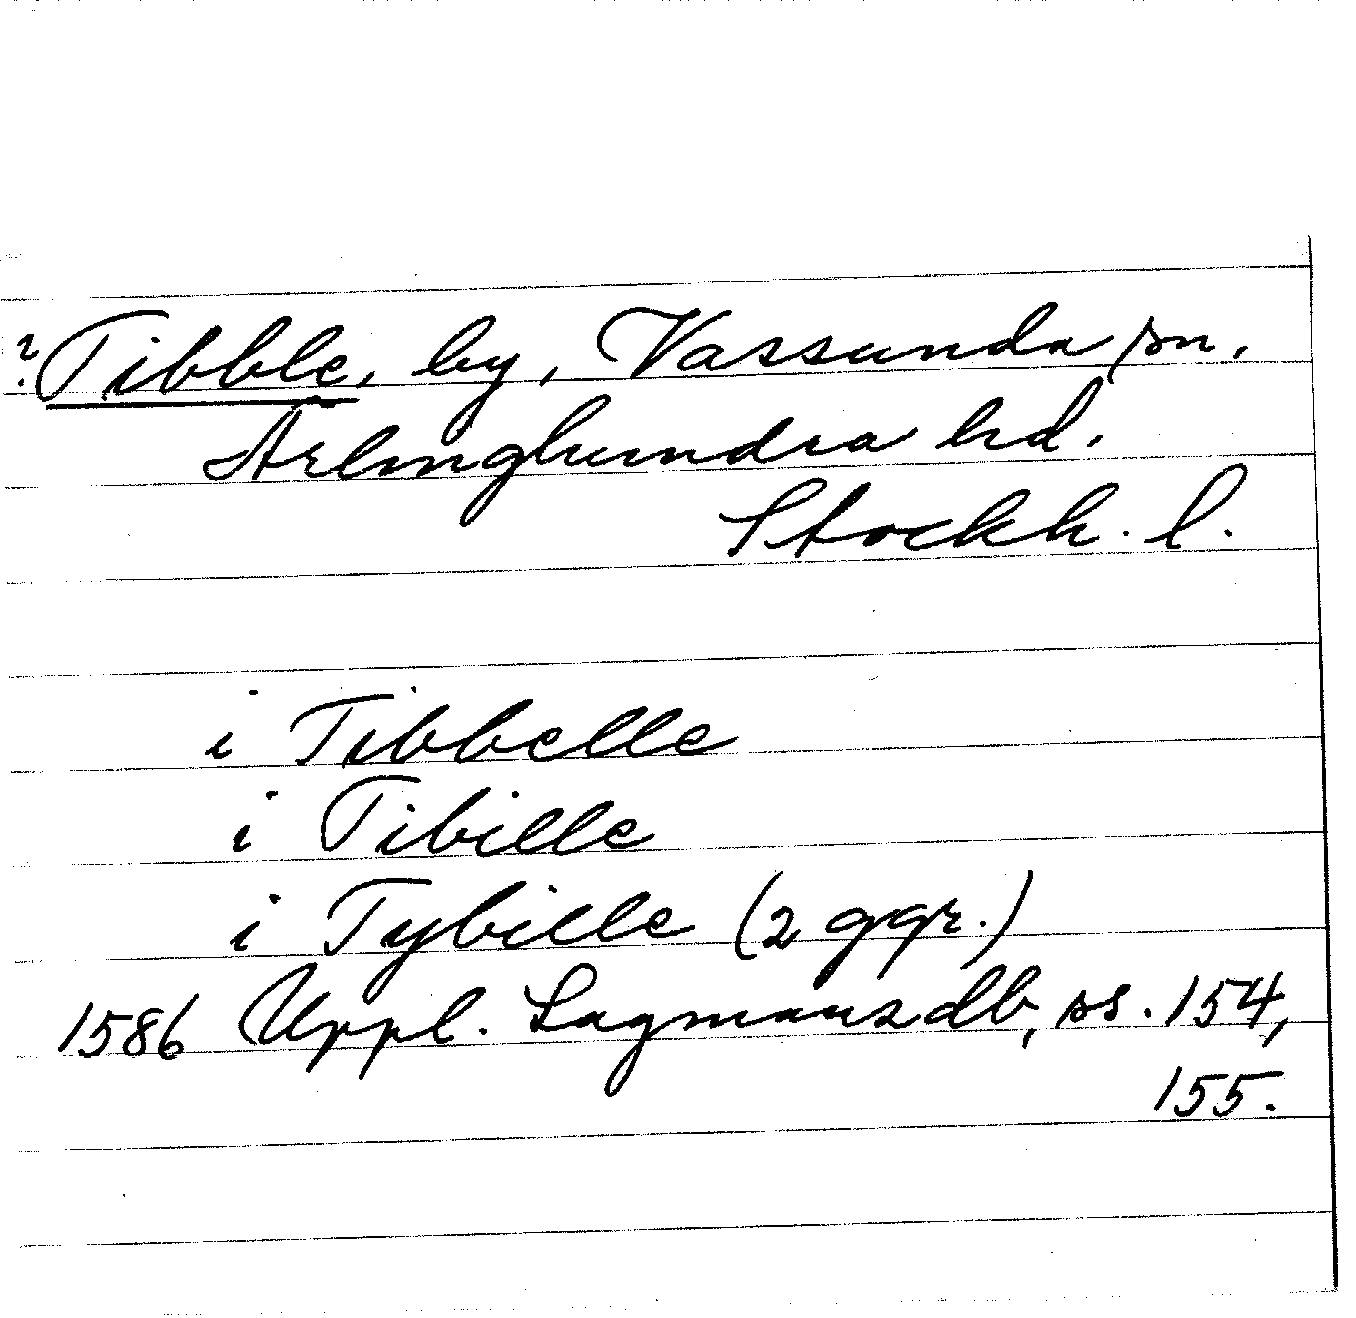 ? Tibble, by, Vassunda sn.
Ärlinghundra hd.
Stockh. l.
i Tibbelle
i Tibille
i Tybille (2 ggr.)
1586 Uppl. Lagmansdb, ss. 154,
155.